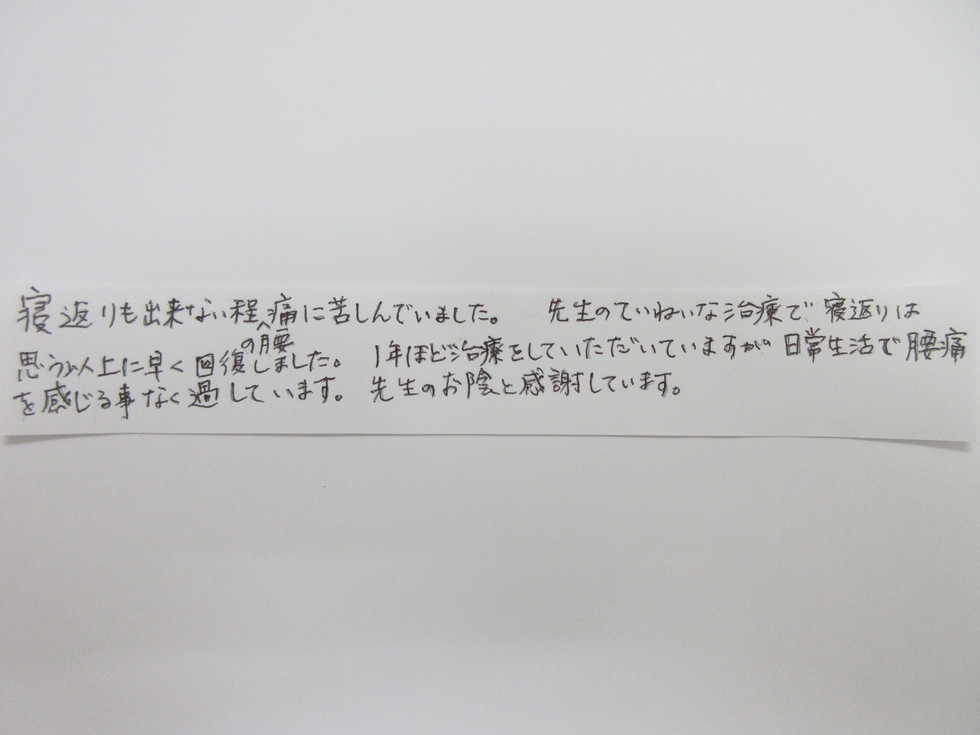 寝返りも出来ない程の腰痛に苦しんでいました。 先生のていねいな治療で寝返りは
思う以上に早く回復しました。 1年ほど治療をしていただいていますが 日常生活で腰痛
を感じる事なく過しています。 先生のお陰と感謝しています。